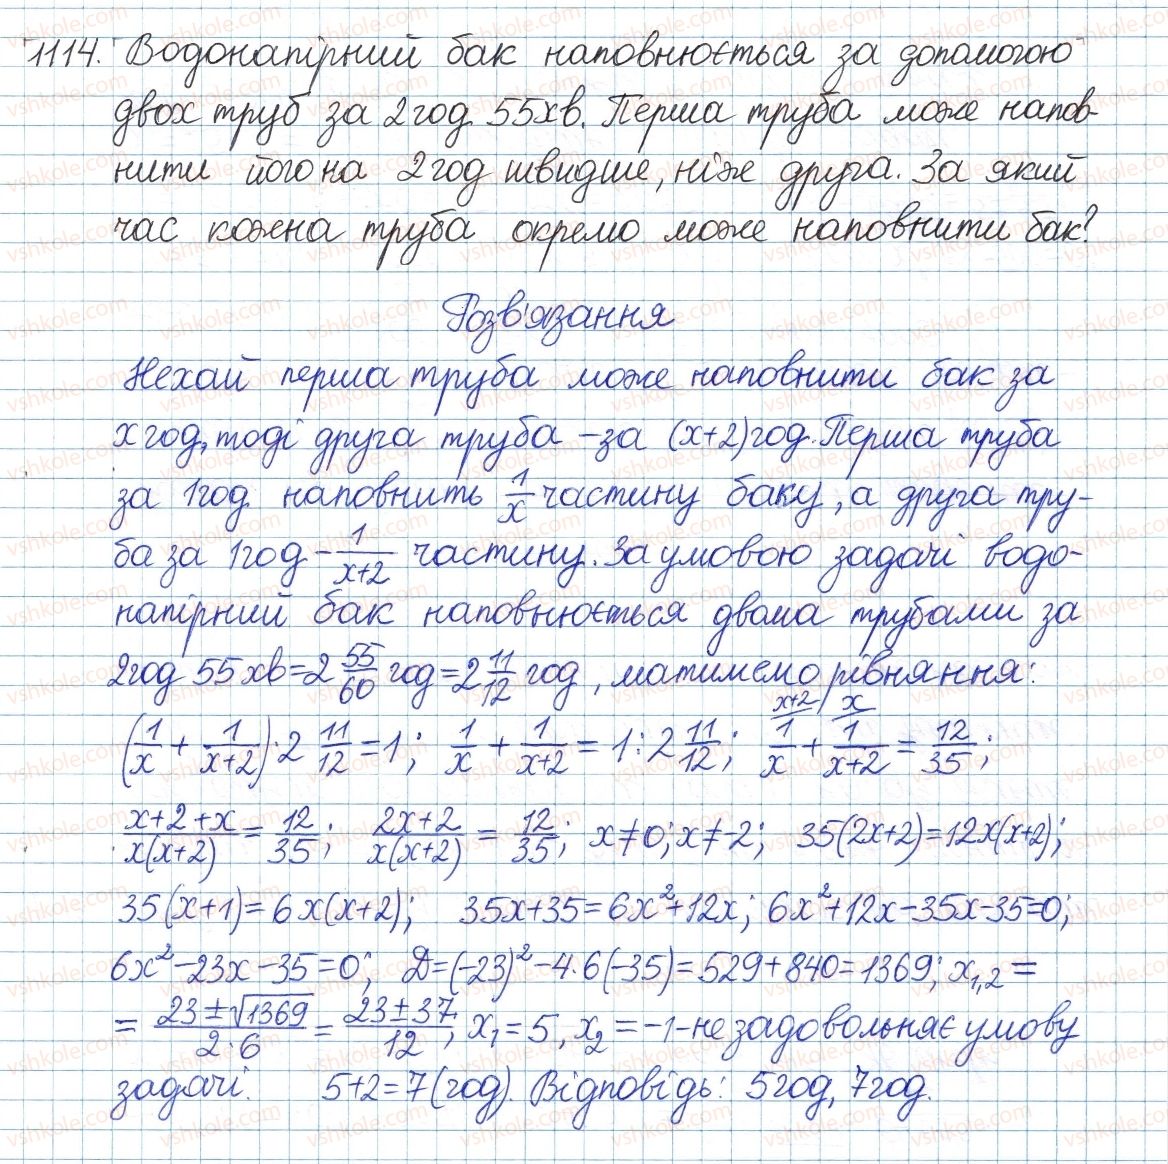 1114. Водонапірний бак наповнюється за допомогою
двох труб за 2 год 55 хв. Перша труба може напов-
нити його на 2 год швидше, ніж друга. За який
час кожна труба окремо може наповнити бак?
Розв'язання
Нехай перша труба може наповнити бак за
x год, тоді друга труба – за (x+2) год. Перша труба
за 1 год наповнить 1/x частину баку, а друга тру-
ба за 1 год – 1/(x+2) частину. За умовою задачі водо-
напірний бак наповнюється двома трубами за
2 год 55 хв = 2 55/60 год = 2 11/12 год, матимемо рівняння:
(1/x + 1/(x+2)) · 2 11/12 = 1; 1/x + 1/(x+2) = 1 : 2 11/12; x+2/ 1/x + x/ 1/(x+2) = 12/35;
(x+2+x)/(x(x+2)) = 12/35; (2x+2)/(x(x+2)) = 12/35; x≠0; x≠-2; 35(2x+2)=12x(x+2);
35(x+1)=6x(x+2); 35x+35=6x²+12x; 6x²+12x-35x-35=0;
6x²-23x-35=0; D=(-23)²-4·6(-35)=529+840=1369; x₁,₂ =
= (23±√1369)/(2·6) = (23±37)/12; x₁=5, x₂=-1 - не задовольняє умову
задачі. 5+2=7 (год). Відповідь: 5 год, 7 год.